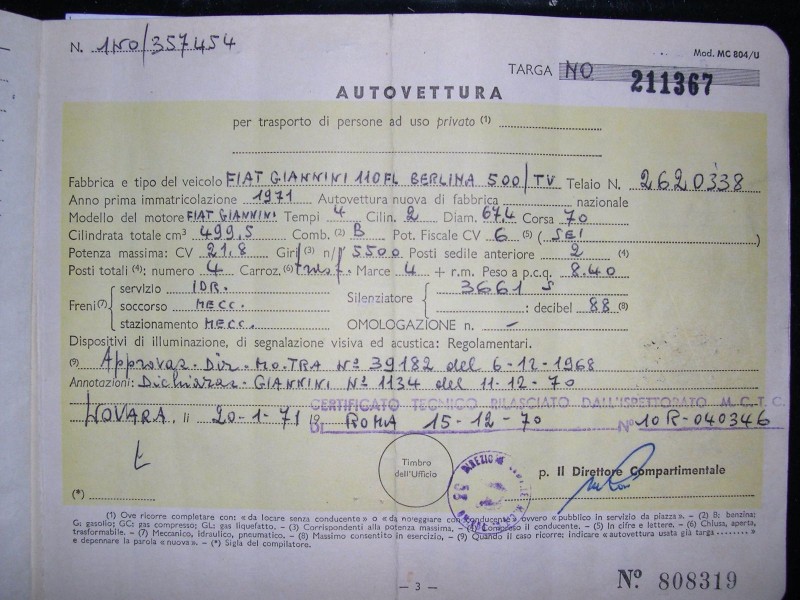 N. 1NO/357454
Mod. MC 804/U
TARGA NO 211367
AUTOVETTURA
per trasporto di persone ad uso privato (1)
Fabbrica e tipo del veicolo FIAT GIANNINI 110FL BERLINA 500/TV Telaio N. 2620338
Anno prima immatricolazione 1971 Autovettura nuova di fabbrica nazionale
Modello del motore FIAT GIANNINI Tempi 4 Cilin. 2 Diam. 67,4 Corsa 70
Cilindrata totale cm³ 499,5 Comb. (2) B Pot. Fiscale CV 6 (5) (SEI)
Potenza massima: CV 21,8 Giri (3) n/1' 5500 Posti sedile anteriore 2 (4)
Posti totali (4): numero 4 Carroz. (6) trasf. Marce 4 + r.m. Peso a p.c.q. 8.40
Freni (7) servizio IDR. Silenziatore 3661 S
soccorso MECC. : decibel 88 (8)
stazionamento MECC. OMOLOGAZIONE n. -
Dispositivi di illuminazione, di segnalazione visiva ed acustica: Regolamentari.
(9) Approvaz. Dir. MO.TRA Nº 39182 del 6-12-1968
Annotazioni: Dichiaraz. GIANNINI Nº 1134 del 11-12-70
CERTIFICATO TECNICO RILASCIATO DALL'ISPETTORATO M.C.T.C.
NOVARA, li 20-1-71 19 DI ROMA 15-12-70 Nº 10R-040346
Timbro
dell'Ufficio
DIREZIONE
p. Il Direttore Compartimentale
(*)
(1) Ove ricorre completare con: «da locare senza conducente» o «da noleggiare con conducente» ovvero «pubblico in servizio da piazza». - (2) B: benzina;
G: gasolio; GC: gas compresso; GL: gas liquefatto. - (3) Corrispondenti alla potenza massima. - (4) Compreso il conducente. - (5) In cifre e lettere. - (6) Chiusa, aperta,
trasformabile. - (7) Meccanico, idraulico, pneumatico. - (8) Massimo consentito in esercizio. - (9) Quando il caso ricorre; indicare «autovettura usata già targa ........»
e depennare la parola «nuova». - (*) Sigla del compilatore.
— 3 —
Nº 808319